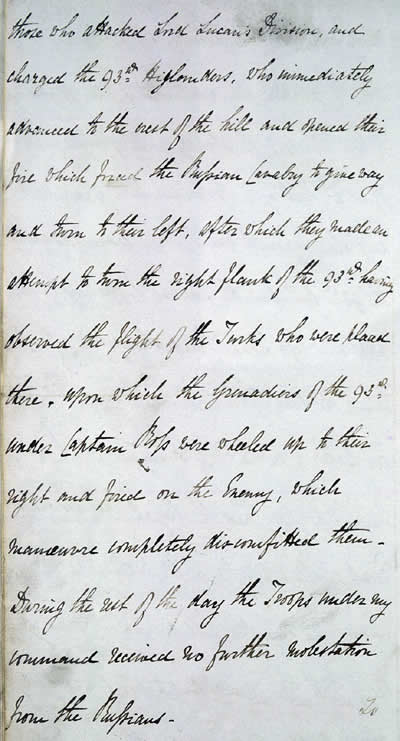 those who attacked Lord Lucan's Division, and
charged the 93rd Highlanders, who immediately
advanced to the crest of the hill and opened their
fire which forced the Russian Cavalry to give way
and turn to their left, after which they made an
attempt to turn the right flank of the 93rd having
observed the flight of the Turks who were placed
there, upon which the Grenadiers of the 93rd
under Captain Ross were wheeled up to their
right and fired on the Enemy, which
manœuvre completely discomfitted them –
During the rest of the day the Troops under my
command received no further molestation
from the Russians –